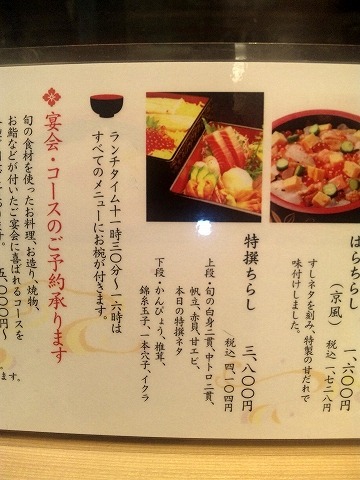 ばらちらし
(京風)
一、六〇〇円
税込 一、七二八円
すしネタを刻み、特製の甘だれで
味付けしました。
特撰ちらし
三、八〇〇円
税込 四、一〇四円
上段・旬の白身二貫、中トロ二貫、
帆立、赤貝、甘エビ、
本日の特撰ネタ
下段・かんぴょう、椎茸、
錦糸玉子、一本穴子、イクラ
ランチタイム十一時三〇分〜一六時は
すべてのメニューにお椀が付きます。
宴会・コースのご予約承ります
旬の食材を使ったお料理、お造り、焼物、
お鮨などが付いたご宴会に喜ばれるコースを
五、〇〇〇円〜